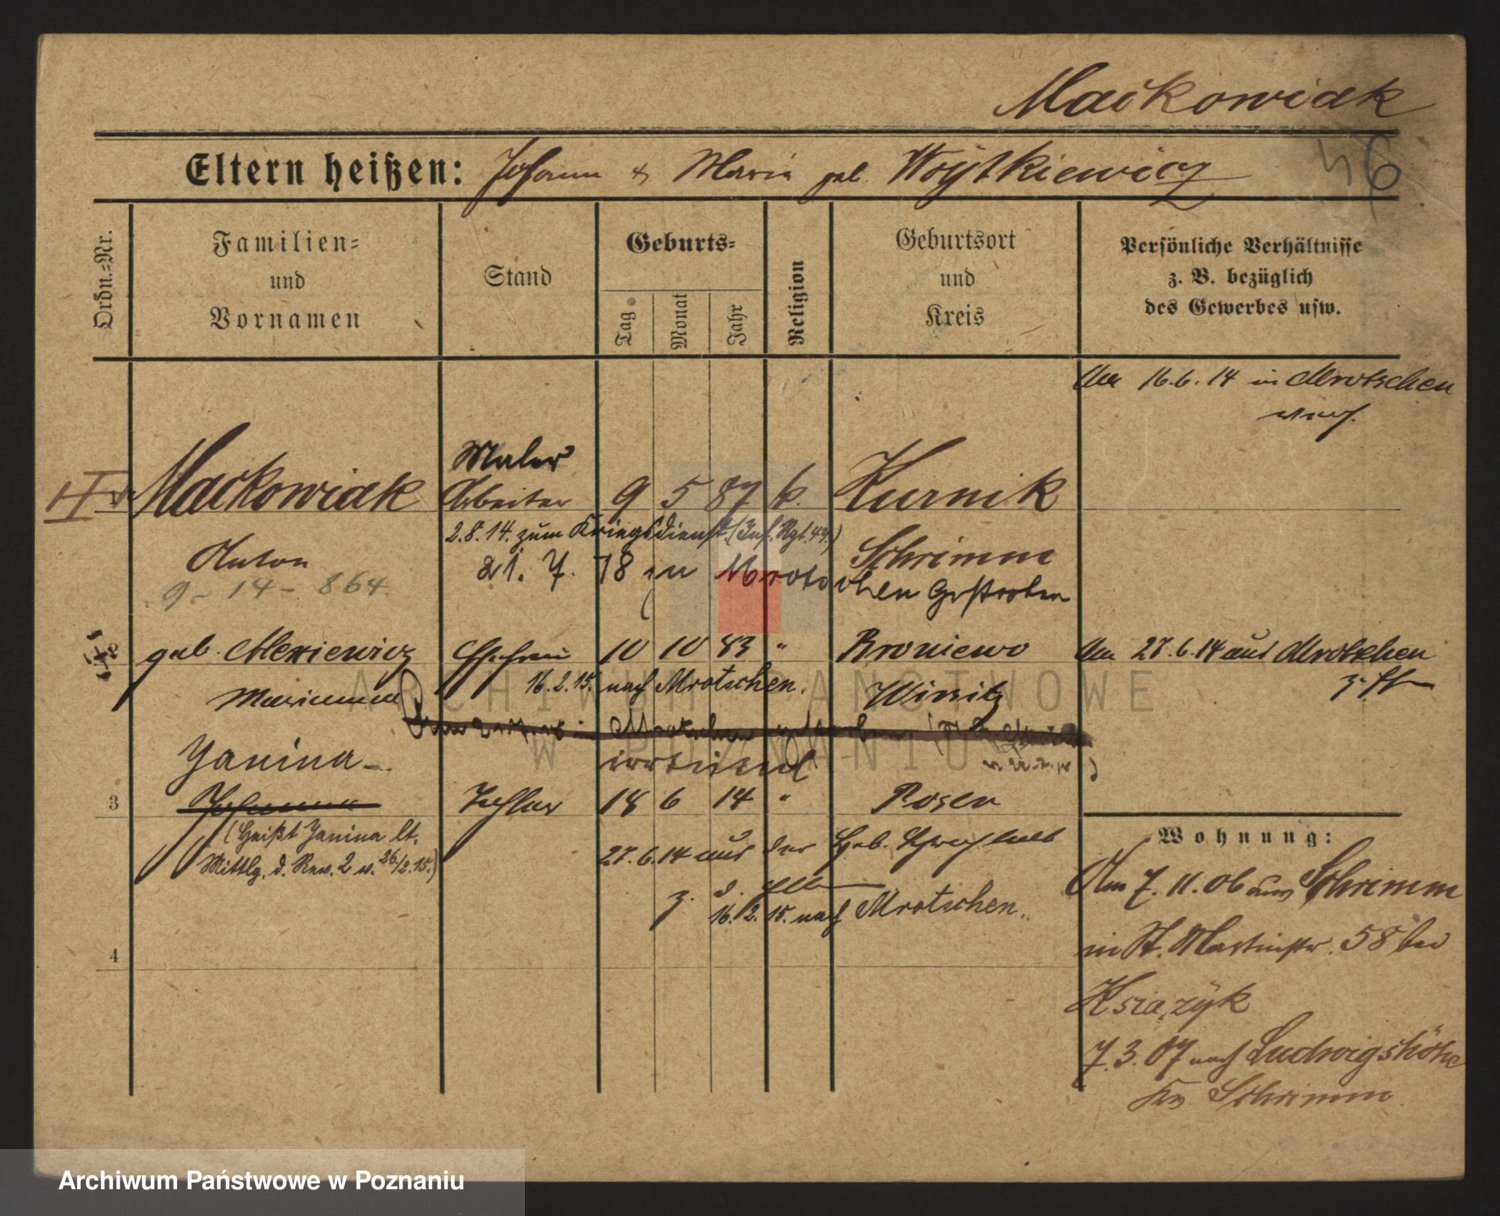 Maćkowiak
Eltern heißen: Johann & Maria geb. Woytkiewicz
56
Ordn.-Nr.
Familien-
und
Vornamen
Stand
Geburts-
Tag
Monat
Jahr
Religion
Geburtsort
und
Kreis
Persönliche Verhältnisse
z. B. bezüglich
des Gewerbes usw.
Am 16.6.14 in Mrotschen
Maler
Maćkowiak Arbeiter 9 5 87 k. Kurnik
2.8.14. zum Kriegsdienst. (Inf. Rgt. 49.)
Anton Schrimm
21. 7. 18 in Mrotschen Gestorben
9 - 14 - 864
geb. Ehefrau 10 10 83 " Broniewo Am 27.6.14 aus Mrotschen
16.2.15. nach Mrotschen.
Marianna Wirsitz
in Mrotschen
irrtüml
Janina
3 Johanna Tochter 18 6 14 " Posen
(Heißt Janina lt.
Mittlg. d. Rev. 2 v. 26/2.15.)
27.6.14 aus der
16.2.15. nach Mrotschen.
4
Wohnung:
Am 7.11.06 aus Schrimm
in St. Martinstr. 58 bei
Ksiazyk
7.3.07 nach Ludwigshöhe
Kr. Schrimm
ARCHIWUM PAŃSTWOWE
W POZNANIU
Archiwum Państwowe w Poznaniu